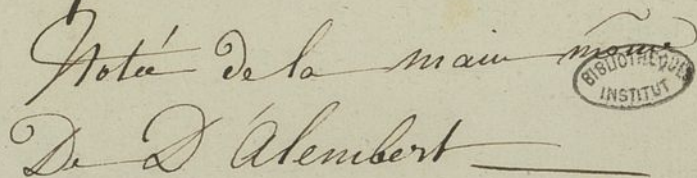 Notée de la main même
BIBLIOTHEQUE
INSTITUT
De D'Alembert